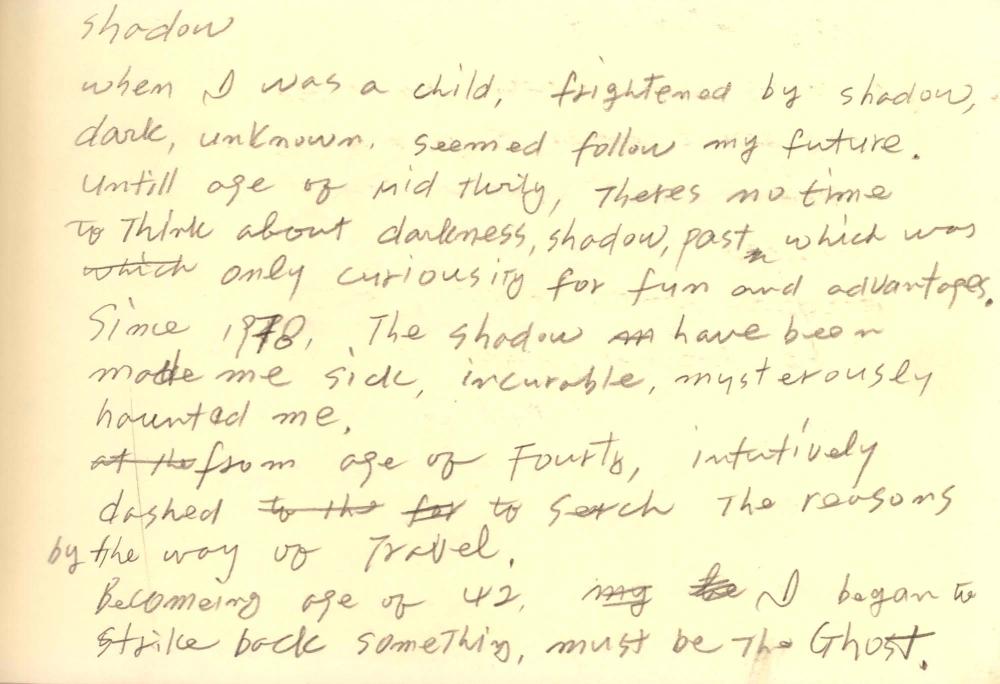 shadow
when I was a child, frightened by shadow,
dark, unknown. seemed follow my future.
Untill age of mid thrity, Theres no time
To Think about darkness, shadow, past, which was
which only curiousity for fun and advantages.
Since 1978, The shadow have been
made me sick, incurable, mysterously
haunted me.
at the from age of Fourty, intutively
dashed to the for to serch The reasons
by the way of Travel.
Becomeing age of 42, my I began to
strike back something, must be The Ghost.